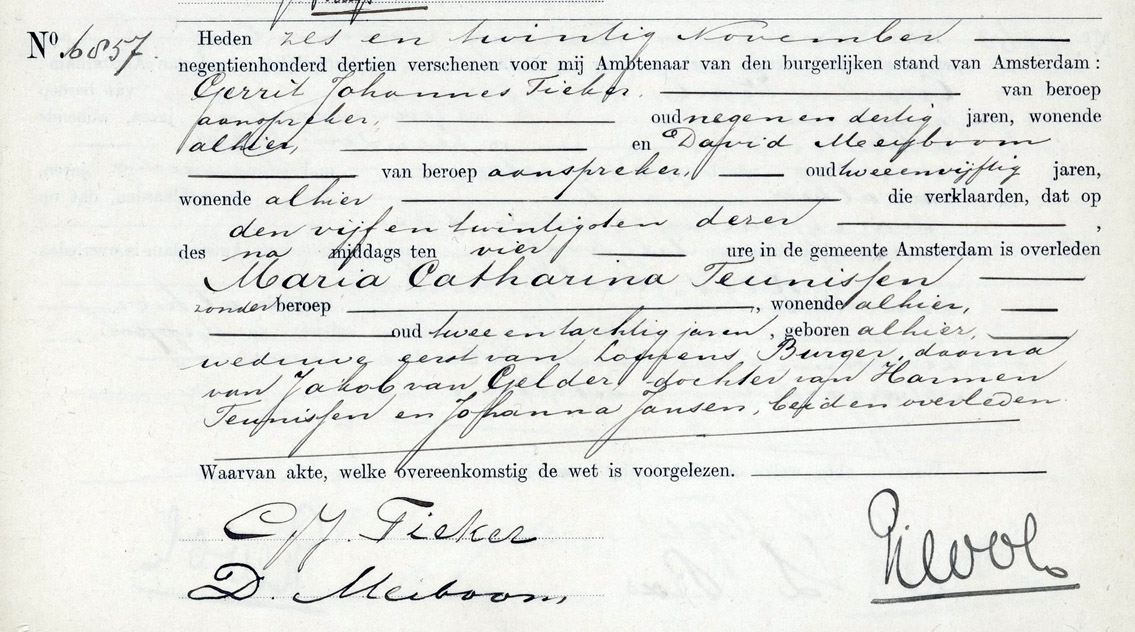 Nº 6857
Heden zes en twintig November
negentienhonderd dertien verschenen voor mij Ambtenaar van den burgerlijken stand van Amsterdam :
Gerrit Johannes Ficker, van beroep
aanspreker, oud negen en dertig jaren, wonende
alhier, en David Meijboom
van beroep aanspreker, oud tweeenvijftig jaren,
wonende alhier die verklaarden, dat op
den vijf en twintigsten dezer ,
des na middags ten vier ure in de gemeente Amsterdam is overleden
Maria Catharina Teunissen
zonder beroep , wonende alhier,
oud twee en tachtig jaren , geboren alhier,
weduwe eerst van Lourens Burger, daarna
van Jakob van Gelder, dochter van Harmen
Teunissen en Johanna Jansen, beiden overleden
Waarvan akte, welke overeenkomstig de wet is voorgelezen.
GJ Ficker
D. Meiboom,